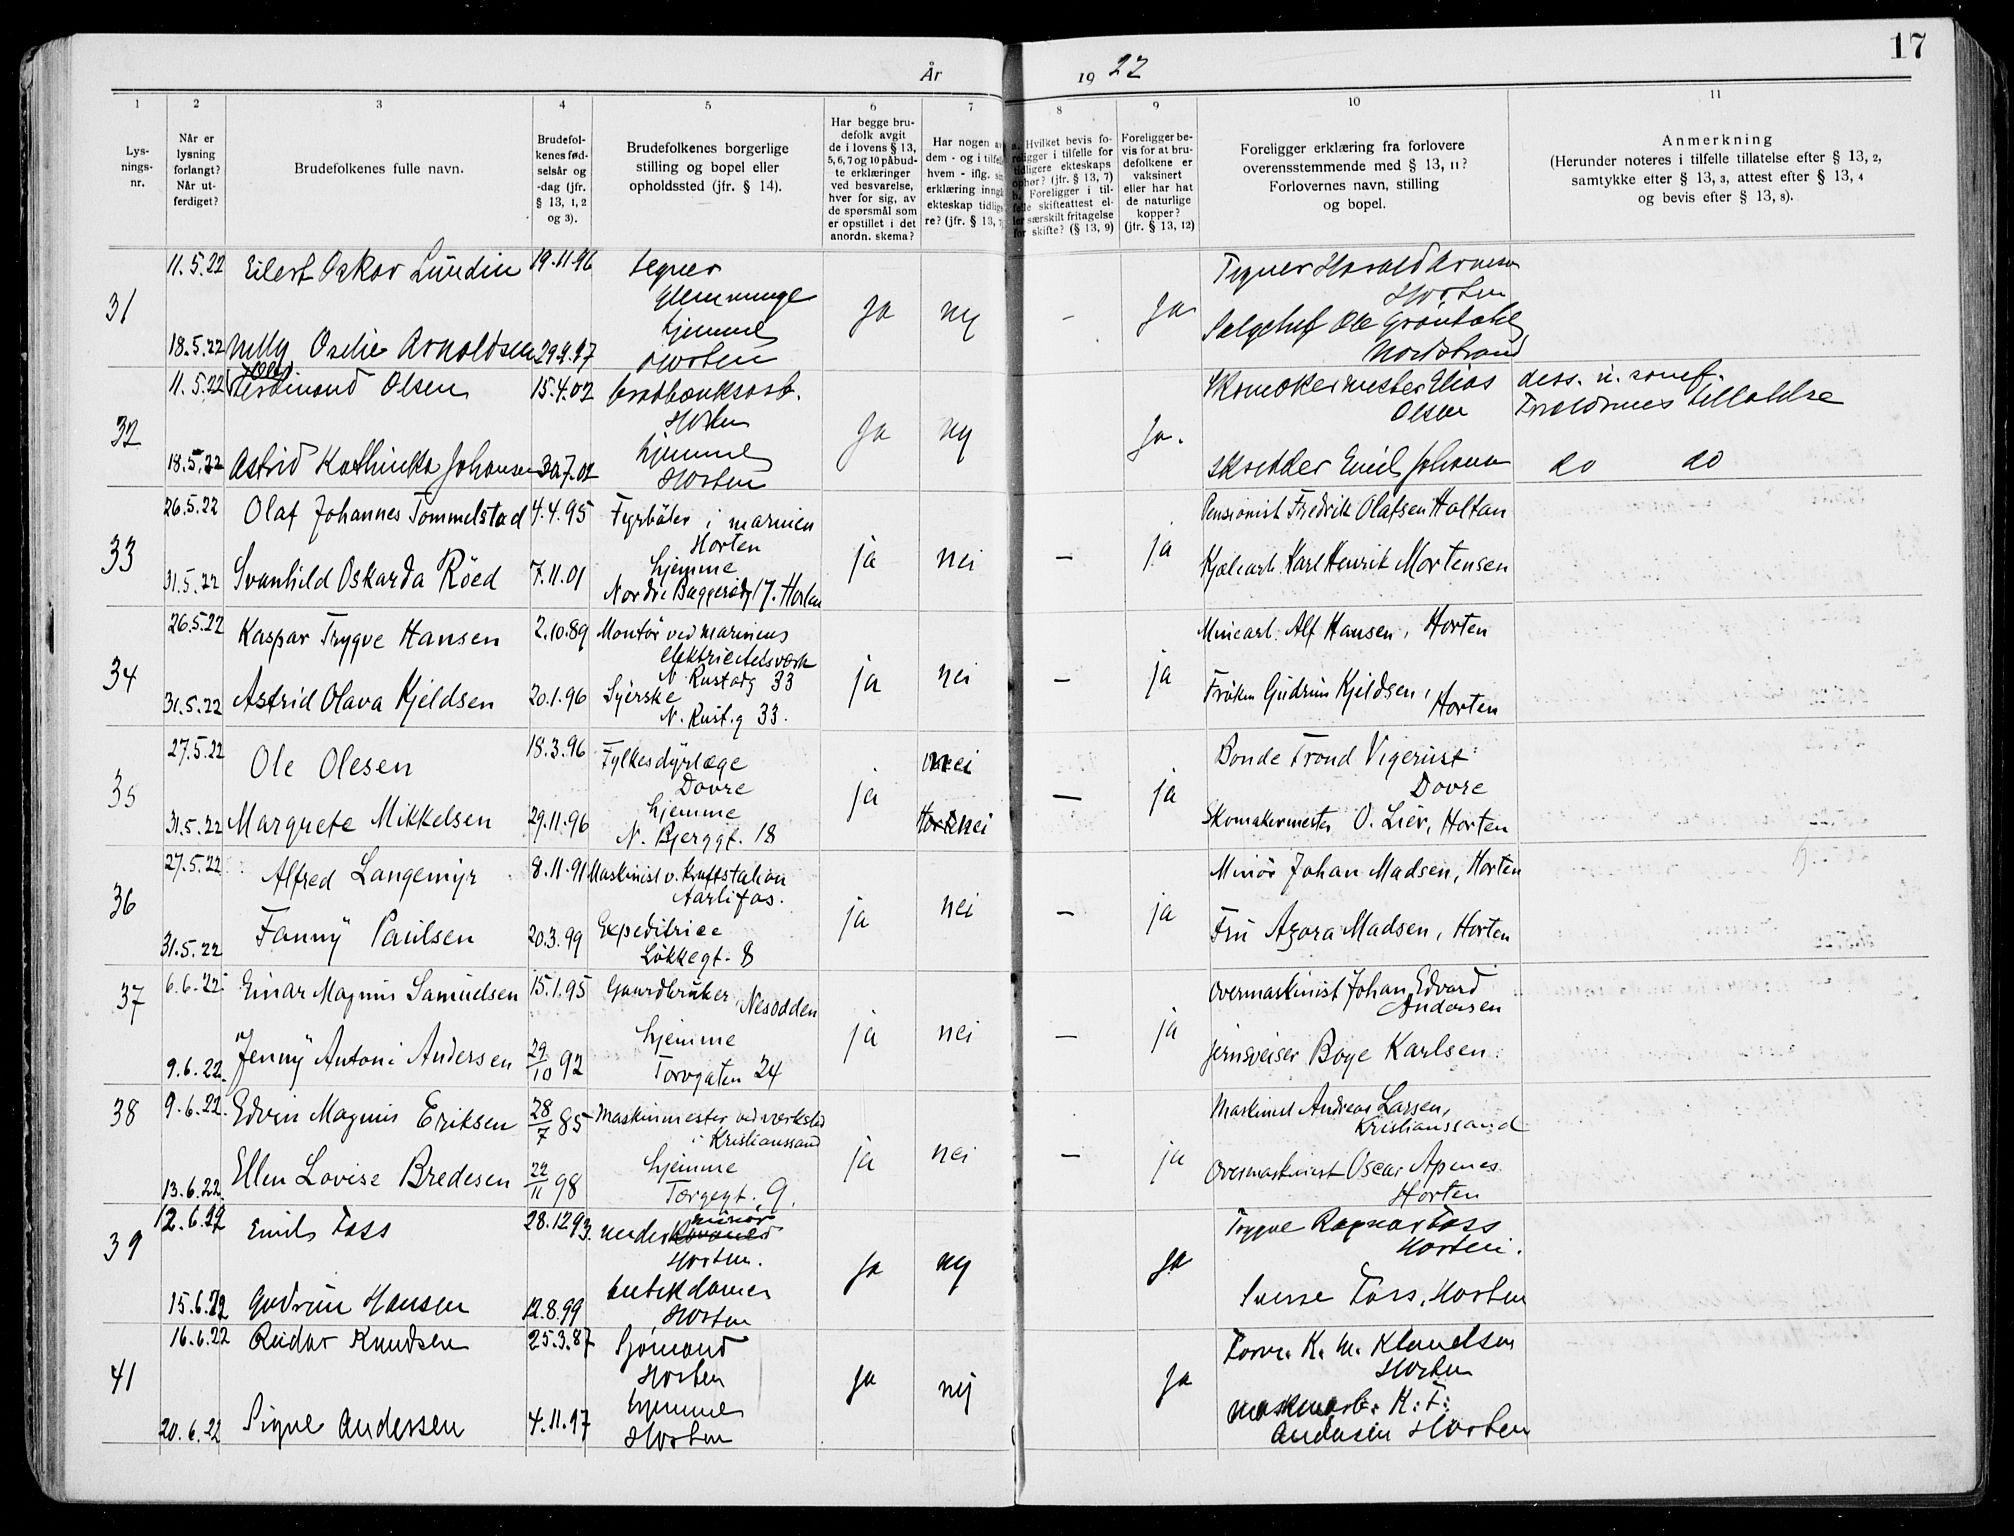 17
År 1922
1
2
3
4
5
6
7
8
9
10
11
Lysningsnr.
Når er lysning forlangt? Når utferdiget?
Brudefolkenes fulle navn.
Brudefolkenes fødselsår og -dag (jfr. § 13, 1, 2 og 3).
Brudefolkenes borgerlige stilling og bopel eller opholdssted (jfr. § 14).
Har begge brudefolk avgit de i lovens § 13, 5, 6, 7 og 10 påbudte erklæringer ved besvarelse, hver for sig, av de spørsmål som er opstillet i det anordn. skema?
Har nogen av dem - og i tilfelle hvem - iflg. erklæring ekteskap tidligere? (jfr. § 13,
a. Hvilket bevis foreligger i tilfelle for tidligere ekteskaps ophør? (jfr. § 13, 7) b. Foreligger i tilfelle skifteattest eller særskilt fritagelse for skifte? (§ 13, 9)
Foreligger bevis for at brudefolkene er vaksinert eller har hat de naturlige kopper? (jfr. § 13, 12)
Foreligger erklæring fra forlovere overensstemmende med § 13, 11? Forlovernes navn, stilling og bopel.
Anmerkning
(Herunder noteres i tilfelle tillatelse efter § 13, 2, samtykke efter § 13, 3, attest efter § 13, 4 og bevis efter § 13, 8).
31
11.5.22 Eilert Oskar Lundin 19.11.96 tegner
hjemme
Horten
18.5.22 Nelly Oselie Arnoldsen
Ja
nej
-
Ja
Tegner Harald Arnesen
Horten
Ole Grøndahl
Nordstrand
32
11.5.22 Ferdinand Olsen 15.4.02
Horten
18.5.22 Astrid Kathinka Johansen 30.7.02 hjemme
Horten
Ja
nej
Ja.
Skomakermester Elias
Olsen
Skredder Emil Johansen
Forældrenes tillatelse
do do
33
26.5.22 Olaf Johannes Tommelstad 4.4.95 Fyrbøter i marinen
Horten
31.5.22 Svanhild Oskarda Röed 7.11.01 hjemme
Nordre Baggerødg 17. Horten
ja
nei
—
ja
Pensionist Fredrik Olafsen Holtan
Kjelearb. Karl Henrik Mortensen
34
26.5.22 Kaspar Trygve Hansen 2.10.89 Montör ved marinens
elektricitetsverk
N. Rustadg 33
31.5.22 Astrid Olava Kjeldsen 20.1.96 Syerske
N. Rust.g 33.
ja
nei
—
ja
Minearb. Alf Hansen, Horten
Fröken Gudrun Kjeldsen,
Horten
35
27.5.22 Ole Olesen 18.3.96 Fylkesdyrlæge
Dovre
31.5.22 Margrete Mikkelsen 29.11.96 hjemme
N. Bjerggt. 18
ja
nei
nei
—
ja
Bonde Trond Vigerust
Dovre
Skomakermester O. Lier, Horten
36
27.5.22 Alfred Langemyr 8.11.91 Maskinist v. Kraftstation
Aarlifos.
31.5.22 Fanny Paulsen 20.3.99 Expeditrice
Løkkegt. 8
ja
nei
—
ja
Minör Johan Madsen, Horten
Fru Agora Madsen, Horten
37
6.6.22 Einar Magnus Samuelsen 15.1.95 Gaardbruker
Nesodden
9.6.22. Jenny Antoni Andersen 29/10 92 hjemme
Torvgaten 24
ja
nei
—
ja
Overmaskinist Johan Edvard
Andersen
jernsveiser Boye Karlsen
38
9.6.22. Edvin Magnus Eriksen 28/7 85 Maskinmester ved verksted
i Kristianssand
13.6.22. Ellen Lovise Bredesen 22/11 98 hjemme
Torgegt. 9.
ja
nei
—
ja
Maskinist Andreas Larsen,
Kristianssand
Overmaskinist Oscar Apenes
Horten
39
12.6.22 Emil Foss 28.12.93. underminör
Horten.
15.6.22 Gudrun Hansen 12.8.99 butikdame
Horten
Ja
nej
Ja
Trygve Ragnar Foss
Horten.
Sverre Foss, Horten
41
16.6.22 Reidar Knudsen 25.3.87 Sjömand
Horten
20.6.22 Signe Andersen 4.11.97 hjemme
Horten
Ja
nej
Ja
Horten
Maskinarb. K. F.
Andersen Horten